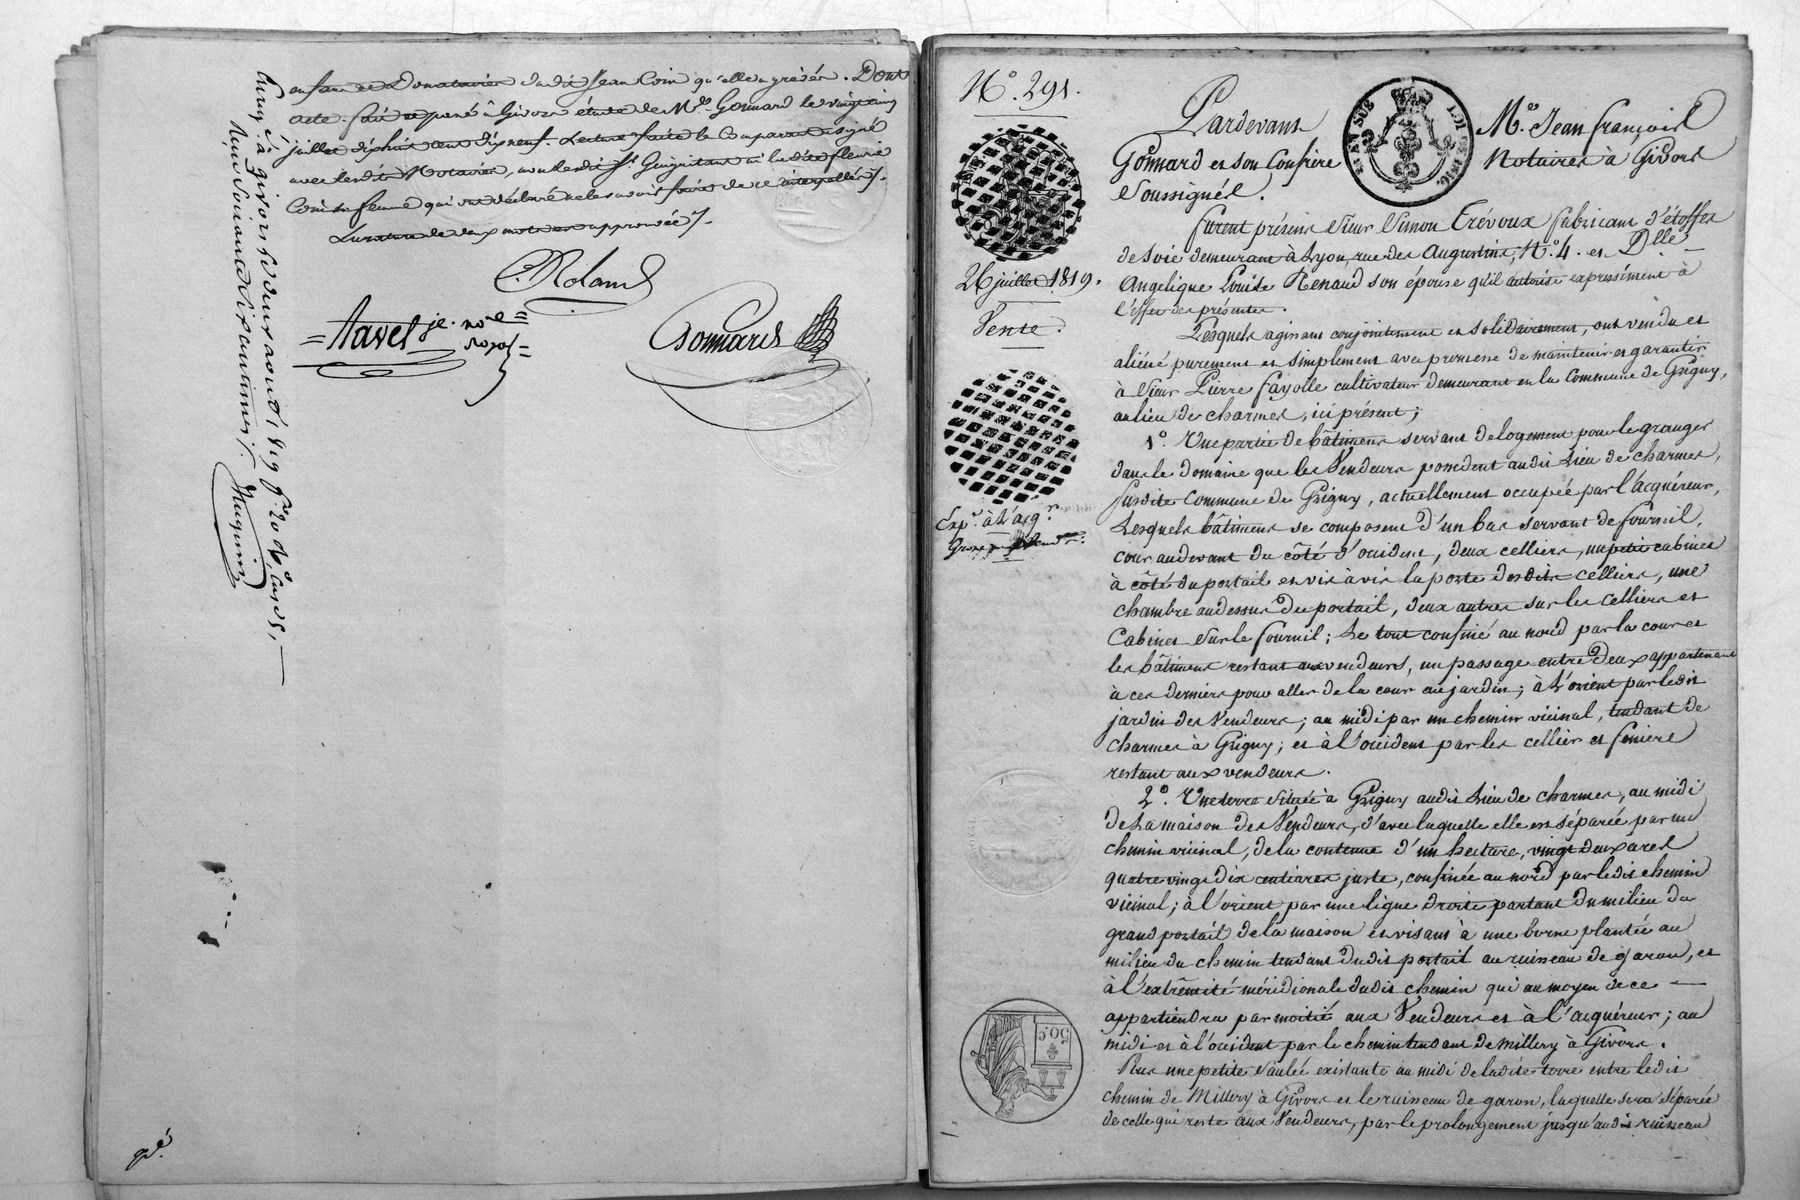 enfans et Donataires dudit Jean Coin qu'elle a grévés. Dont
acte. fait et passé à Givors étude de Me. Gonnard le vingt cinq
juillet dix huit cent dix neuf. Lecture faite le Comparant a signé
avec lesdits Notaires, non ledit Sr. Guigritant ni ladite fleurie
Coin sa femme qui ont déclaré ne le savoir faire de ce interpellés ./.
La rature de deux mots est approuvée ./.
Roland
= Tavel je. nore =
royal =
Gonnard
Enreg. à givors le deux août 1819 fo. 20 Vo. Cases 1.
Reçu
Huguin
qd.
No. 291.
26 juillet 1819.
Vente.
Exp.on à l'acqr.
Grosse
AN SUS
50 c
Pardevant Me. Jean françois
Gonnard et son Confrère Notaires à Givors
Soussignés.
furent présens Sieur Simon Trévoux fabricant d'étoffes
de Soie demeurant à Lyon, rue des Augustins, No. 4. et Dlle.
Angélique Louise Renaud son épouse qu'il autorise expressément à
l'effet des présentes.
Lesquels agissant conjointement et solidairement, ont vendu et
aliéné purement et simplement avec promesse de maintenir et garantir
à Sieur Pierre fayolle cultivateur demeurant en la Commune de Grigny,
au lieu de charmes, ici présent;
1o. Une partie de bâtimens servant de logement pour le granger
dans le domaine que les Vendeurs possedent audit Lieu de charmes,
Susdite Commune de Grigny, actuellement occupée par l'acquéreur,
Lesquels bâtimens se composent d'un bas servant de fournil,
cour au devant du côté d'occident, deux celliers, un petit cabinet
à côté du portail et vis à vis la porte desdits celliers, une
chambre au dessus du portail, deux autres sur les Celliers et
Cabinet Sur le fournil; Le tout confiné au nord par la cour et
les bâtimens restant aux vendeurs, un passage entre deux appartenant
à ces derniers pour aller de la cour au jardin; à L'orient par ledit
jardin des Vendeurs; au midi par un chemin vicinal, tendant de
charmes à Grigny; et à l'occident par les cellier et feniere
restant aux vendeurs.
2o. Une terre située à Grigny audit Lieu de charmes, au midi
de La maison des Vendeurs, d'avec laquelle elle est séparée par un
chemin vicinal, de la contenue d'un hectare, vingt deux ares
quatre vingt dix centiares juste, confinée au nord par ledit chemin
vicinal; à l'orient par une ligne droite partant du milieu du
grand portail de la maison et visant à une borne plantée au
milieu du chemin tendant dudit portail au ruisseau de garon, et
à l'extrêmité méridionale dudit chemin qui au moyen de ce
appartiendra par moitié aux Vendeurs et à l'acquéreur; au
midi et à l'occident par le chemin tendant de Millery à Givors.
Plus une petite Saulée existante au midi de ladite terre entre ledit
chemin de Millery à Givors et le ruisseau de garon, laquelle sera séparée
de celle qui reste aux Vendeurs, par le prolongement jusqu'audit ruisseau